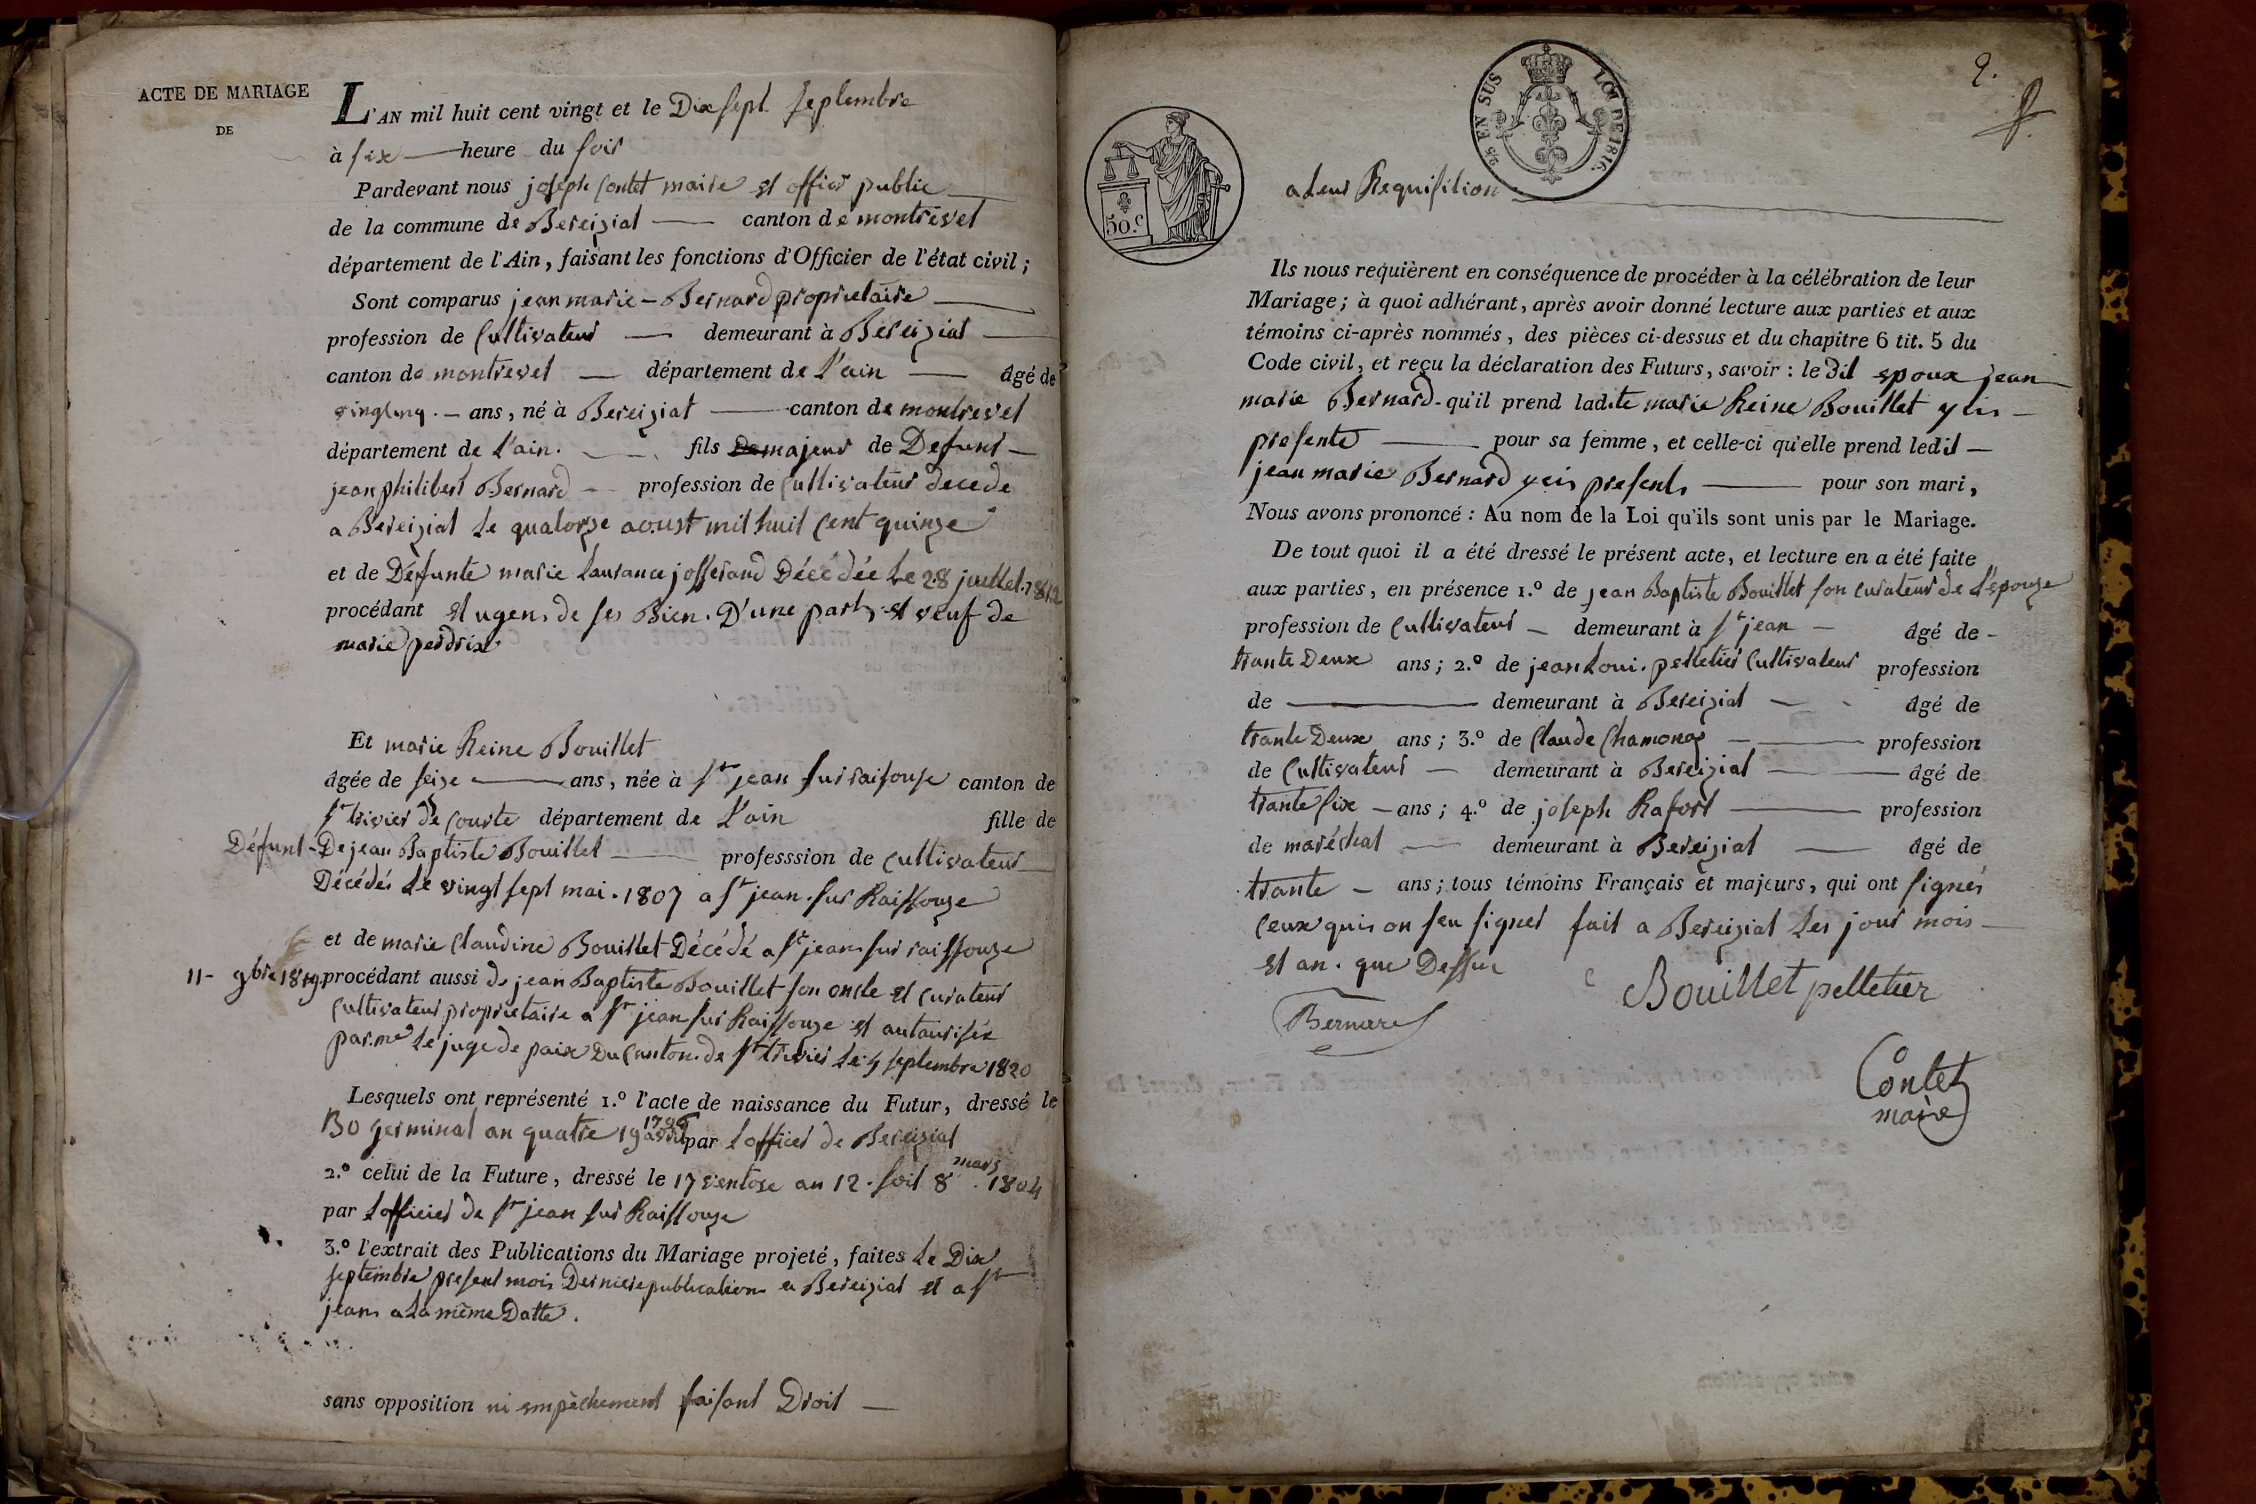 ACTE DE MARIAGE
DE
L'AN mil huit cent vingt et le Dix sept Septembre
à six heure du soir
Pardevant nous joseph Contet maire et officier public
de la commune de Bereiziat canton de montrevel
département de l'Ain, faisant les fonctions d'Officier de l'état civil;
Sont comparus jean marie Bernard proprietaire
profession de Cultivateur demeurant à Bereiziat
canton de montrevel département de L'ain âgé de
vingt cinq ans, né à Bereiziat canton de montrevel
département de L'ain. fils majeur de Defunt
jean philibert Bernard profession de Cultivateur decede
a Bereiziat Le quatorze aoust mil huit Cent quinze
et de Défunte marie Laurance josserand Décédée Le 28 juillet 1812
procédant et de ses Bien. D'une part, et veuf de
marie perdrix
Et marie Reine Bouillet
âgée de seize ans, née à St jean sur raisouse canton de
St trivier de Courte département de L'ain fille de
Défunt De jean Baptiste Bouillet professsion de Cultivateur
Décédés Le vingt sept mai. 1807 a St jean sur Raissouze
et de marie Claudine Bouillet Décédé a St jean sur raissouze
11 9bre 1819 procédant aussi de jean Baptiste Bouillet son oncle et Curateur
Cultivateur proprietaire a St jean sur Raissouze et autaurisée
par me Le juge de paix Du Canton de St trivier Le 4 septembre 1820
Lesquels ont représenté 1.º l'acte de naissance du Futur, dressé le
30 germinal an quatre 19 avril 1796 par Lofficier de Bereiziat
2.º celui de la Future, dressé le 17 ventose an 12. soit 8 mars 1804
par Lofficier de St jean sur Raissouze
3.º l'extrait des Publications du Mariage projeté, faites Le Dix
septembre present mois Derniere publication a Bereiziat et a St
jean a La même Datte.
sans opposition ni empêchement faisant Droit
2.
25 EN SUS LOI DE 1816.
50.c
a Leur Requisition
Ils nous requièrent en conséquence de procéder à la célébration de leur
Mariage; à quoi adhérant, après avoir donné lecture aux parties et aux
témoins ci-après nommés, des pièces ci-dessus et du chapitre 6 tit. 5 du
Code civil, et reçu la déclaration des Futurs, savoir: le dit epoux jean
marie Bernard qu'il prend ladite marie Reine Bouillet y cis
presente pour sa femme, et celle-ci qu'elle prend ledit
jean marie Bernard y cis present pour son mari,
Nous avons prononcé: Au nom de la Loi qu'ils sont unis par le Mariage.
De tout quoi il a été dressé le présent acte, et lecture en a été faite
aux parties, en présence 1.º de jean Baptiste Bouillet son curateur de L'épouze
profession de Cultivateur demeurant à St jean âgé de
trante Deux ans; 2.º de jean Loui. pelletier Cultivateur profession
de demeurant à Bereiziat âgé de
trante Deux ans; 3.º de Claude Chamonas profession
de Cultivateur demeurant à Bereiziat âgé de
trante six ans; 4.º de joseph Rafort profession
de maréchal demeurant à Bereiziat âgé de
trante ans; tous témoins Français et majeurs, qui ont signés
Ceux quis on seu signer fait a Bereiziat Les jour mois
et an. que Dessus
Bernard
Bouillet pelletier
Contet
maire